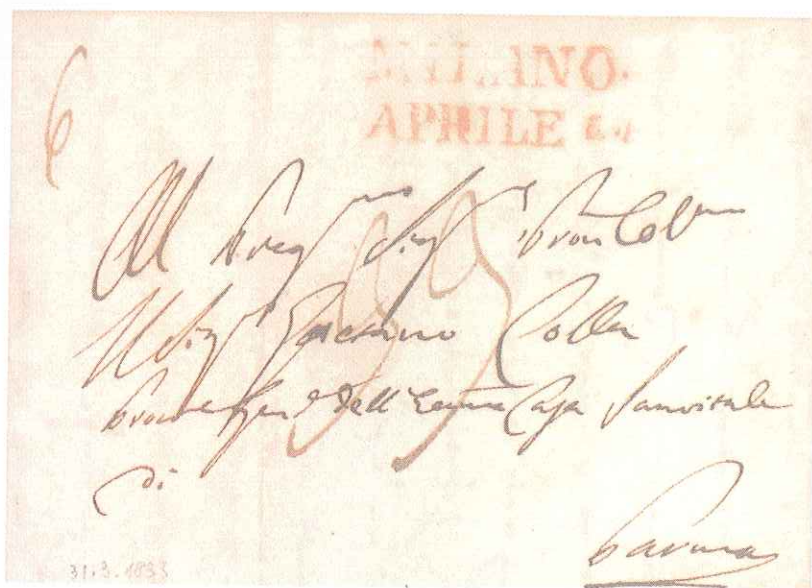 6
MILANO.
APRILE
Al Preg.mo Sig.r Pron Col.mo
Il Sig.r Gaetano Colla
Gen.e dell'Ecc.ma Casa Sanvitale
di
Parma
31.3.1833